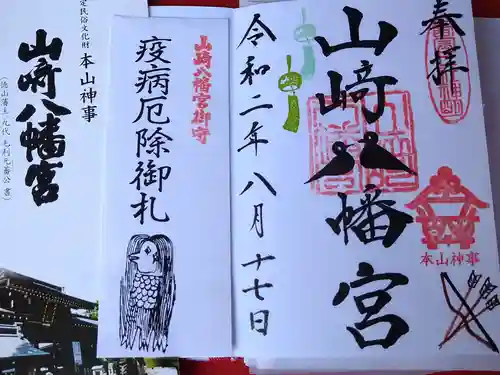 奉拝
山﨑八幡宮
本山神事
令和二年八月十七日
山﨑八幡宮御守
疫病厄除御札
定民俗文化財 本山神事
山﨑八幡宮
(徳山藩主九代 毛利元蕃公 書)